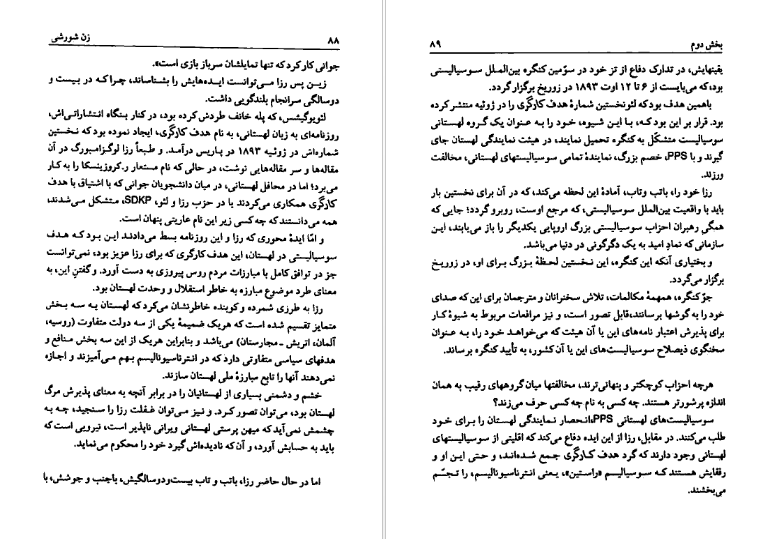 زن شورشی
۸۸
جوانی کار کرد که تنها نمایلشان سرباز بازی است».
زین پس رزا می‌توانست ایده‌هایش را بشناساند، چرا که در بیست و
دوسالگی سرانجام بلندگویی داشت.
لئویوگیشس، که پله خانف طردش کرده بود، در کنار بنگاه انتشاراتی‌اش،
روزنامه‌ای به زبان لهستانی، به نام هدف کارگری، ایجاد نموده بود که نخستین
شماره‌اش در ژوئیه ۱۸۹۳ در پاریس درآمد. و طبعاً رزا لوگزامبورگ در آن
مقاله‌ها و سر مقاله‌هایی نوشت، در حالی که نام مستعار ر.کروزینسکا را به کار
می‌برد؛ اما در محافل لهستانی، در میان دانشجویان جوانی که با اشتیاق با هدف
کارگری همکاری می‌کردند یا در حزب رزا و لئو، SDKP، متشکل می‌شدند،
همه می‌دانستند که چه کسی زیر این نام عاریتی پنهان است.
و امّا ایدهٔ محوری که رزا و این روزنامه بسط می‌دادند این بود که هدف
سوسیالیستی در لهستان، این هدف کارگری که برای رزا عزیز بود، نمی‌توانست
جز در توافق کامل با مبارزات مردم روس پیروزی به دست آورد. و گفتن این، به
معنای طرد موضوع مبارزه به خاطر استقلال و وحدت لهستان بود.
رزا به طرزی شمرده و کوبنده خاطرنشان می‌کرد که لهستان به سه بخش
متمایز تقسیم شده است که هریک ضمیمهٔ یکی از سه دولت متفاوت (روسیه،
آلمان، اتریش ـ مجارستان) می‌باشد و بنابراین هریک از این سه بخش منافع و
هدفهای سیاسی متفاوتی دارد که در انترناسیونالیسم بهم می‌آمیزند و اجازه
نمی‌دهند آنها را تابع مبارزهٔ ملی لهستان سازند.
خشم و دشمنی بسیاری از لهستانیان را در برابر آنچه به معنای پذیرش مرگ
لهستان بود، می‌توان تصور کرد. و نیز می‌توان غفلت رزا را سنجید، چه به
چشمش نمی‌آید که میهن پرستی لهستانی ویرانی ناپذیر است، نیرویی است که
باید به حسابش آورد، و آن که نادیده‌اش گیرد خود را محکوم می‌نماید.
اما در حال حاضر رزا، باتب و تاب بیست‌ودوسالگیش، باجنب و جوشش، با
بخش دوم
۸۹
یقینهایش، در تدارک دفاع از تز خود در سوّمین کنگره بین‌الملل سوسیالیستی
بود، که می‌بایست از ۶ تا ۱۲ اوت ۱۸۹۳ در زوریخ برگزار گردد.
باهمین هدف بود که لئونخستین شمارهٔ هدف کارگری را در ژوئیه منتشر کرده
بود. قرار بر این بود که، با این شیوه، خود را به عنوان یک گروه لهستانی
سوسیالیست متشکّل به کنگره تحمیل نمایند، در هیئت نمایندگی لهستان جای
گیرند و با PPS، خصم بزرگ، نمایندهٔ تمامی سوسیالیستهای لهستانی، مخالفت
ورزند.
رزا خود را، باتب وتاب، آمادهٔ این لحظه می‌کند، که در آن برای نخستین بار
باید با واقعیت بین‌الملل سوسیالیستی، که مرجع اوست، روبرو گردد؛ جایی که
همگی رهبران احزاب سوسیالیستی بزرگ اروپایی یکدیگر را باز می‌یابند، این
سازمانی که نماد امید به یک دگرگونی در دنیا می‌باشد.
و بختیاری آنکه این کنگره، این نخستین لحظهٔ بزرگ برای او، در زوریخ
برگزار می‌گردد.
جوّ کنگره، همهمهٔ مکالمات، تلاش سخنرانان و مترجمان برای این که صدای
خود را به گوشها برسانند،قابل تصور است، و نیز مرافعات مربوط به شیوهٔ کار
برای پذیرش اعتبار نامه‌های این یا آن هیئت که می‌خواهد خود را، به عنوان
سخنگوی ذیصلاح سوسیالیست‌های این یا آن کشور، به تأیید کنگره برساند.
هرچه احزاب کوچکتر و پنهانی‌ترند، مخالفتها میان گروههای رقیب به همان
اندازه پرشورتر هستند. چه کسی به نام چه کسی حرف می‌زند؟
سوسیالیست‌های لهستانی PPS،انحصار نمایندگی لهستان را برای خود
طلب می‌کنند. در مقابل، رزا از این ایده دفاع می‌کند که اقلیتی از سوسیالیستهای
لهستانی وجود دارند که گرد هدف کارگری جمع شده‌اند، و حتی این او و
رفقایش هستند که سوسیالیسم «راستین»، یعنی انترناسیونالیسم، را تجسّم
می‌بخشند.